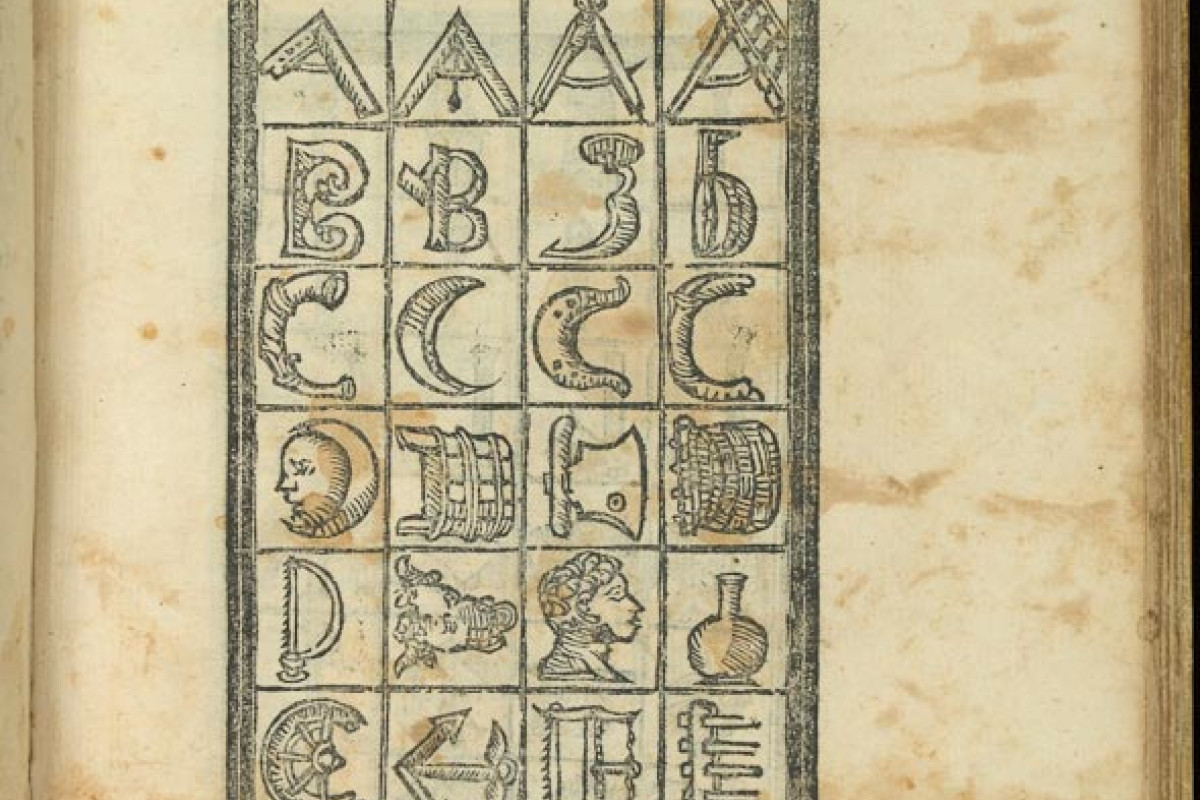 A A A A
B B 3 b
C C C C
D D D D
D
E E E E